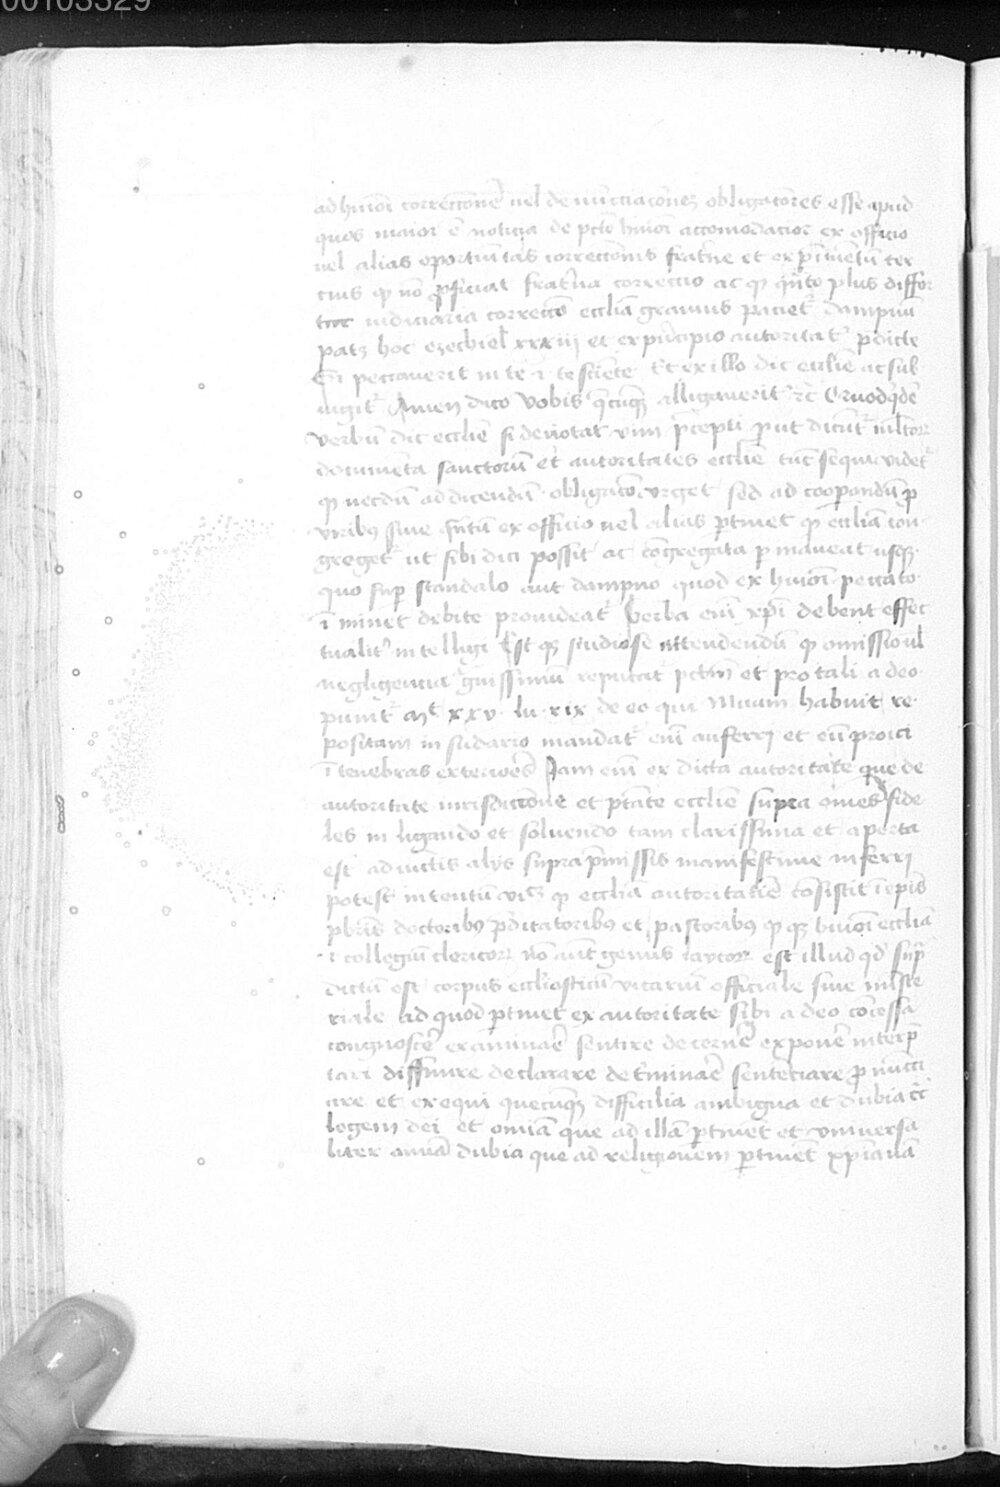 00103329
ad huiōi correccōnē vel denūcciacōneȝ obligatiores esse apud
quos maior ē noticia de pctō huiōi accomodacior ex officio
vel alias oportunitas correccōnis fratne et expimētū ter
cius qƥ nō ꝓficiat fratna correccio ac qƥ qnto plus differ
tur iudiciaria correccō eccliā gravius paciet dampnū
patȝ hoc ezechiel xxxiij et ex pncipio autoritat pdicte
Si peccaverit in te i te sciente Et ex illo dic ecclie ac sub
iugit Amen dico vobis qcūqȝ alligaverit rc Quodqdē
verbū dic ecclie si denotat vim pcepti put dicūt
documēta sanctorū et autoritates ecclie tūc sequi videt
qƥ necdū ad dicendū obligatō urget sed ad coopandū ꝓ
viribus sive qntū ex officio vel alias ptinet qƥ eccliā con
greget ut sibi dici possit ac congregata pmaneat usqȝ
quo sup scandalo aut dampno quod ex huiōi peccato
īminet debite provideat Verba enī xpi debent effec
tualit intelligi Est qȝ studiose attendendū qƥ omissio vel
negligencia gvissimū reputat pctm et pro tali a deo
punit Mt xxv lu xix de eo qui Mnam habuit re
positam in sudario mandat enī auferri et eū proici
ī tenebras exteriores Jam enī ex dicta autoritate que de
autoritate iurisdiccōne et ptate ecclie supra omēs fide
les in ligando et solvendo tam clarissima et aperta
est adiūctis alijs supra pmissis manifestissime inferri
potest intentū vicȝ qƥ ecclia autoritatie cōsistit ī epis
pbris doctoribus pdicatoribus et pastoribus qƥ qȝ huiōi eccliā
i collegiū clericor nō aut genus laycor est illud qd sup
dictū est corpus ecclesiasticū vicariū officiale sive miste
riale ad quod ptinet ex autoritate sibi a deo cōcessa
congnoscē examinaē sentire decernē exponē interp
tari diffinire declarare detminaē sentēciare ꝓnūcci
are et exequi quecūqȝ difficilia ambigua et dubia cc
legem dei et omia que ad illā ptinet et universa
liter omia dubia que ad religionem ptinēt xpianā